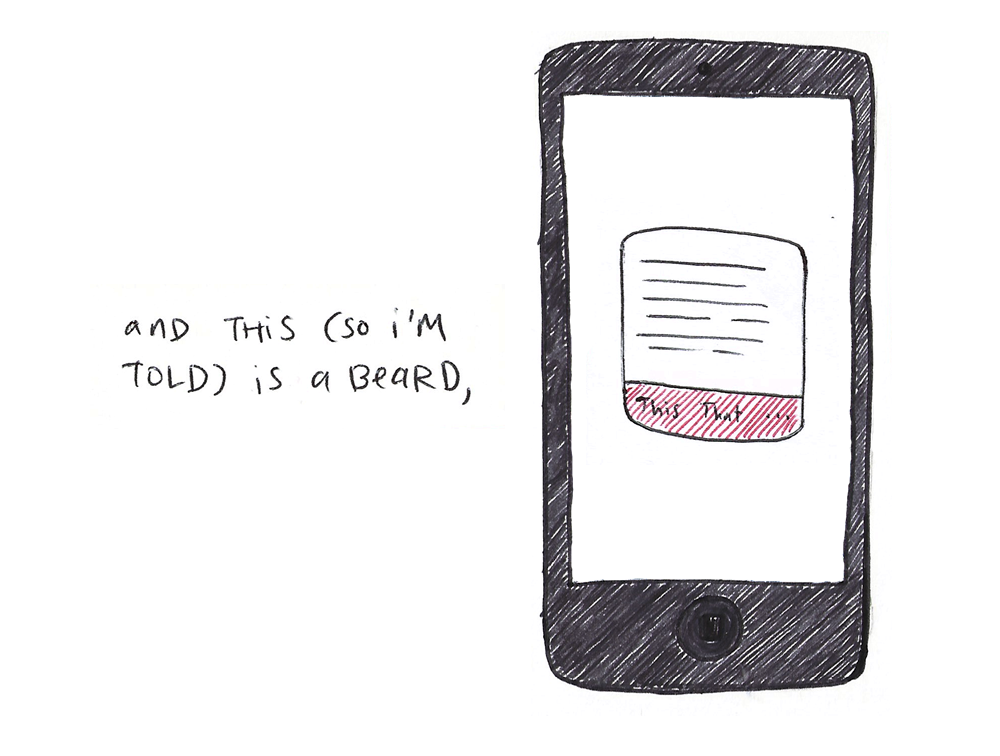 and THiS (so i'M
TOLD) is a BeaRD,
This That ...